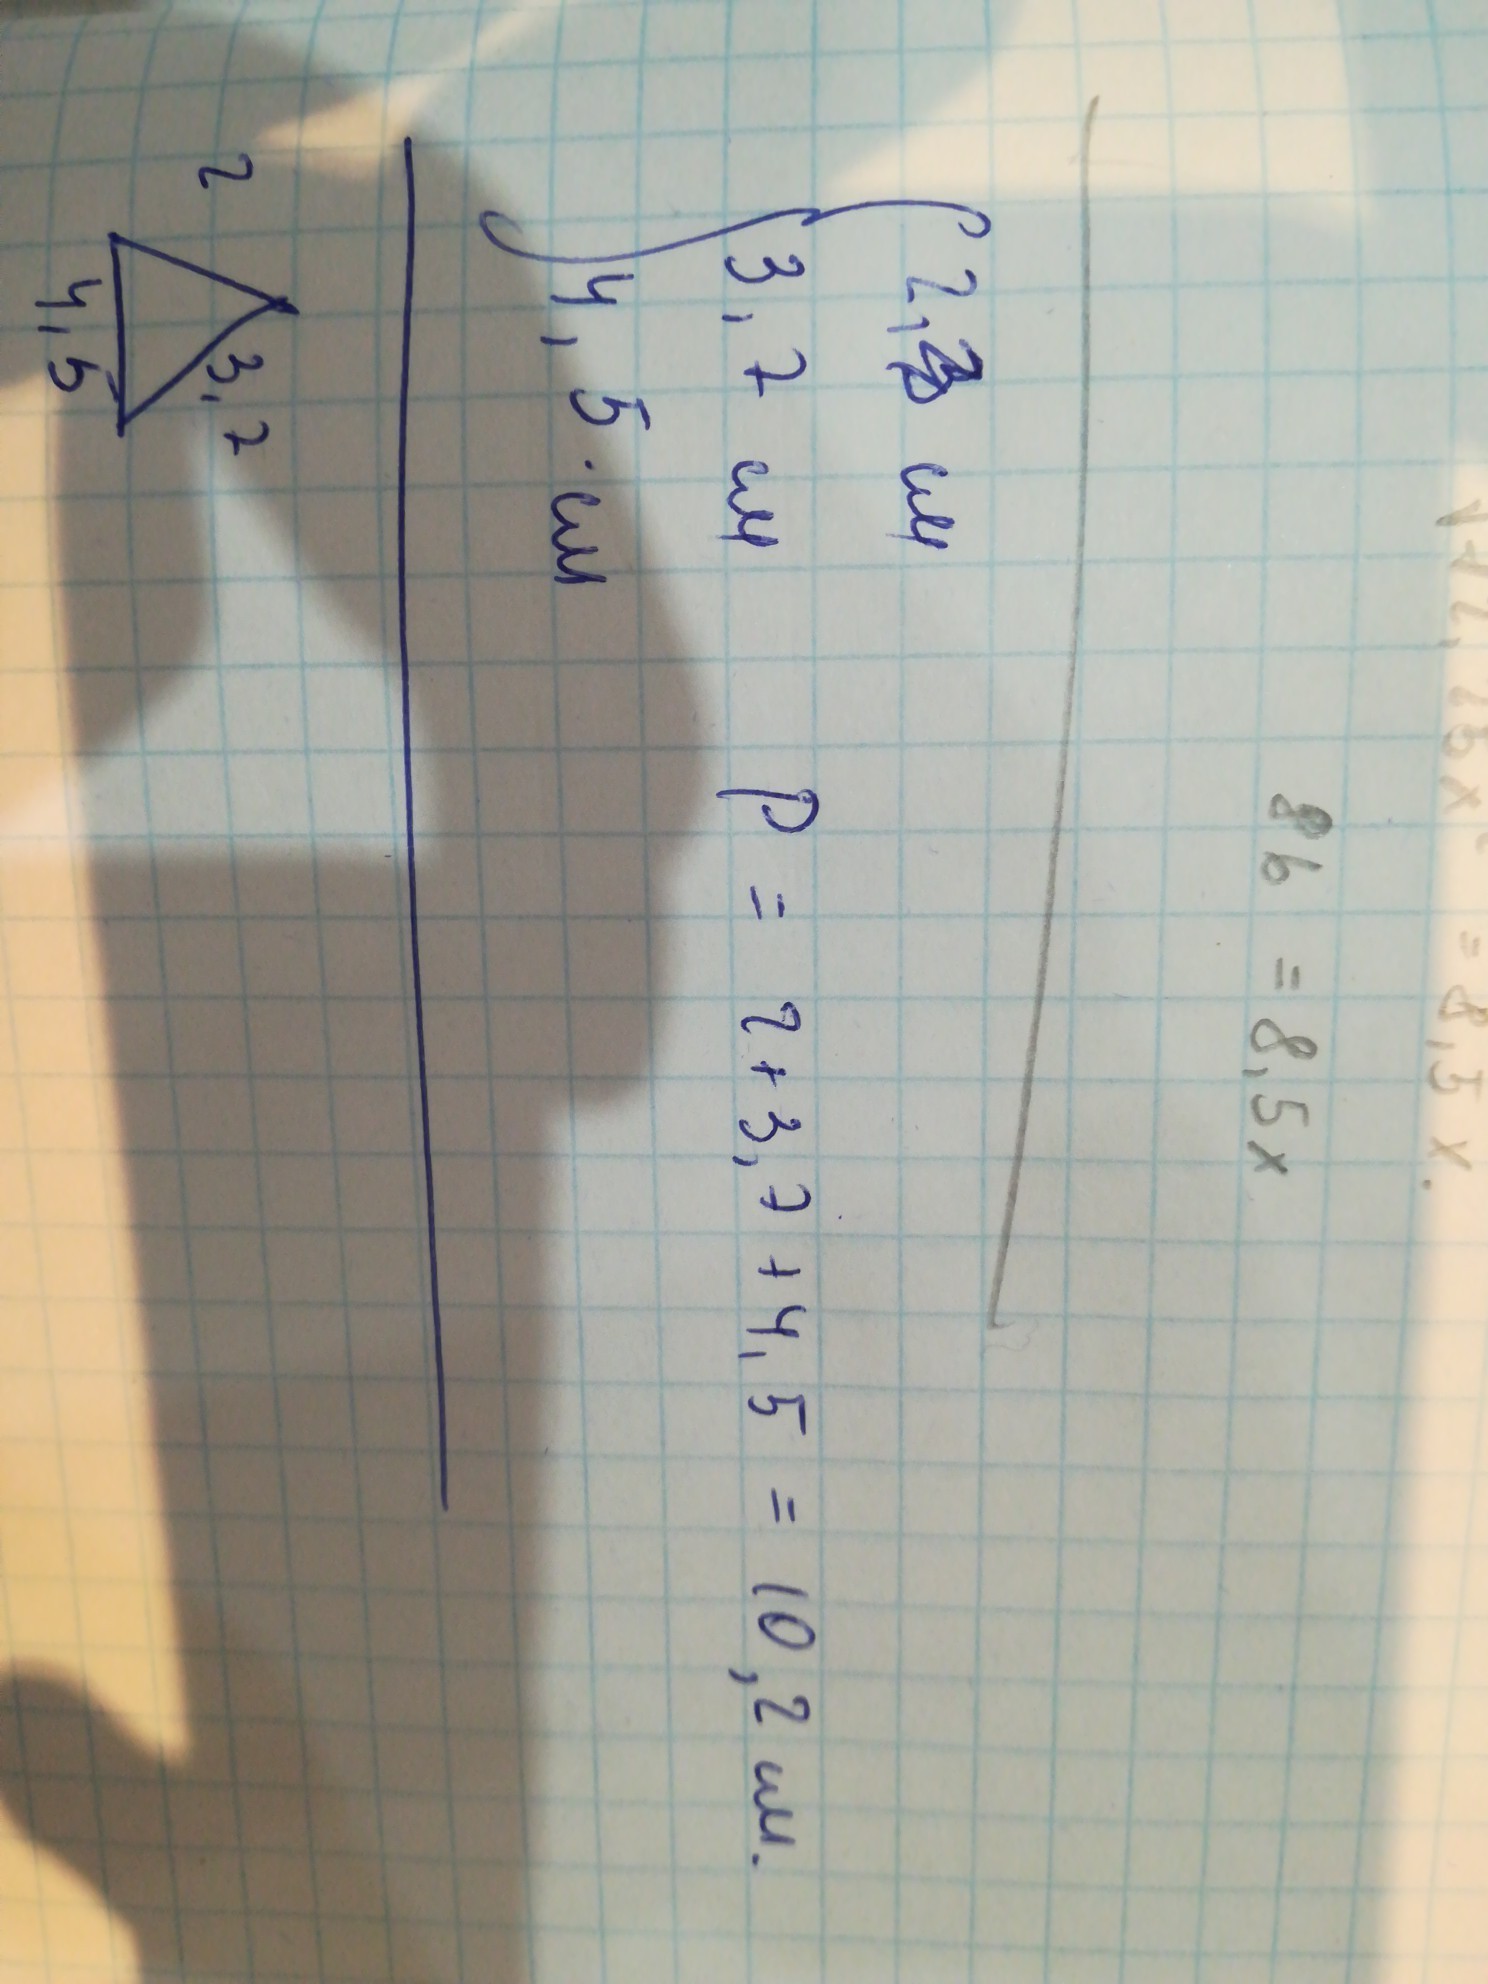 = 8,5x.
86 = 8,5x
см
3,7 см
4,5 см
P = 2+3,7+4,5 = 10,2 см.
2
3,7
4,5